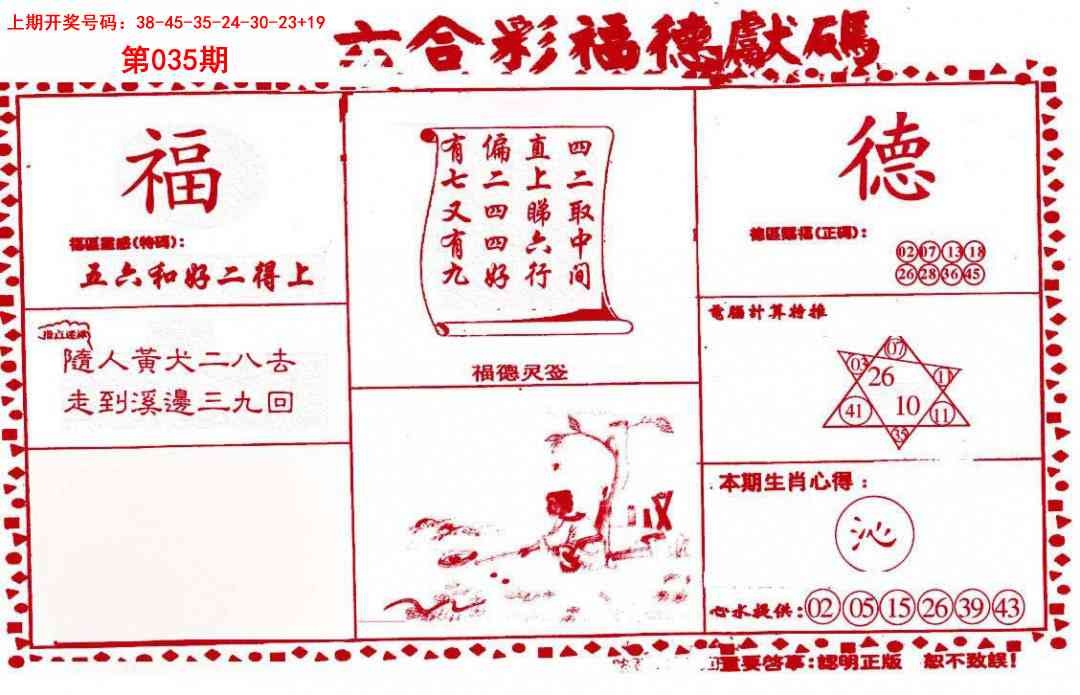 上期开奖号码：38-45-35-24-30-23+19
第035期
六合彩福德獻碼
福
福區靈感(特碼)：
五六和好二得上
隨人黃犬二八去
走到溪邊三九回
四二取中间
直上睇六行
偏二四四好
有七又有九
福德灵签
德
德區賜福(正碼)：
02 07 13 18
26 28 36 45
電腦計算特推
07
03 26 11
41 10 11
35
本期生肖心得：
沁
心水提供：02 05 15 26 39 43
重要啓事：認明正版 恕不致誤！